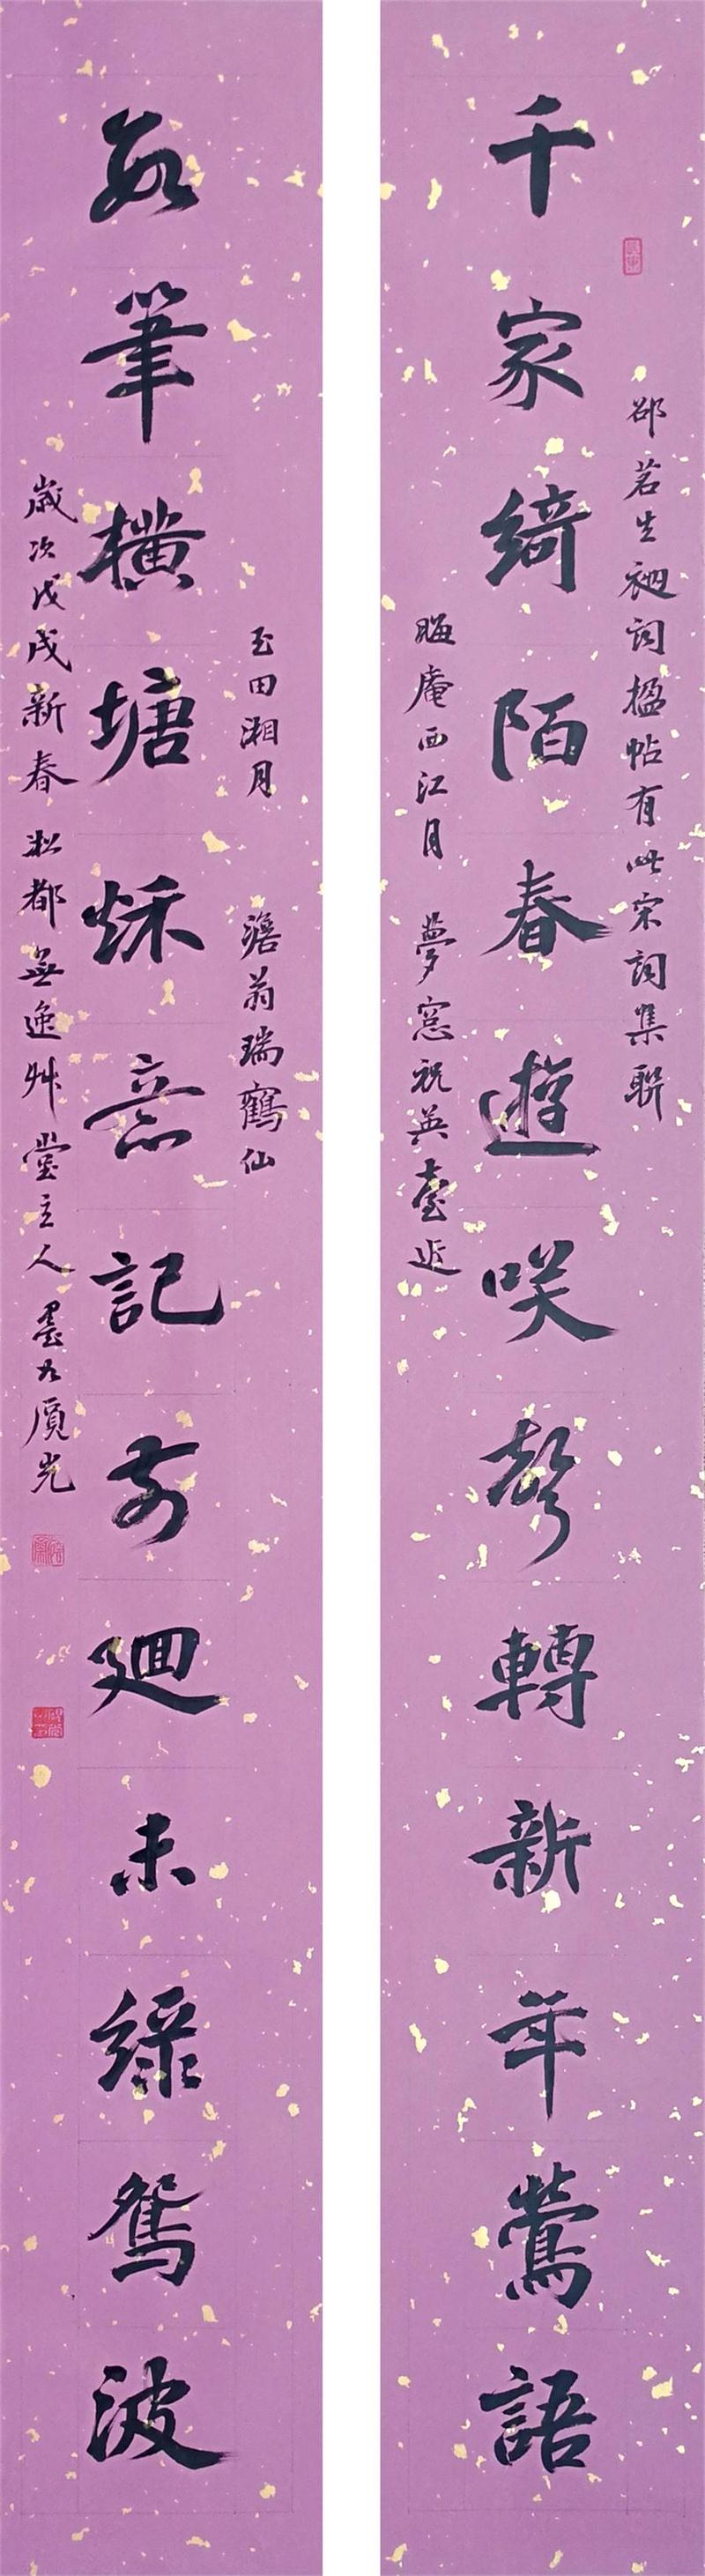 千家綺陌春遊咲聲轉新年鶯語
邵茗生衲詞楹帖有此宋詞集聯
晦庵西江月 夢窓祝英臺近
數筆橫塘秌意記前廻未綠鴛波
玉田湘月 澹翁瑞鶴仙
歲次戊戌新春淞都無逸艸堂主人